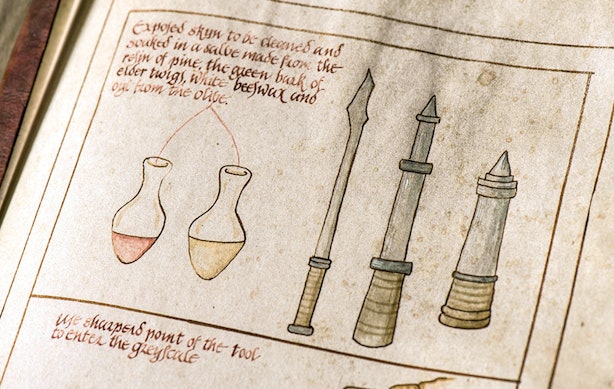 Exposed skyn to be cleaned and
soaked in a salve made from the
rosyn of pine, the green bark of
elder twigs, white beeswax and
oyl from the olive.
Use sharpend point of the tool
to enter the greyscale